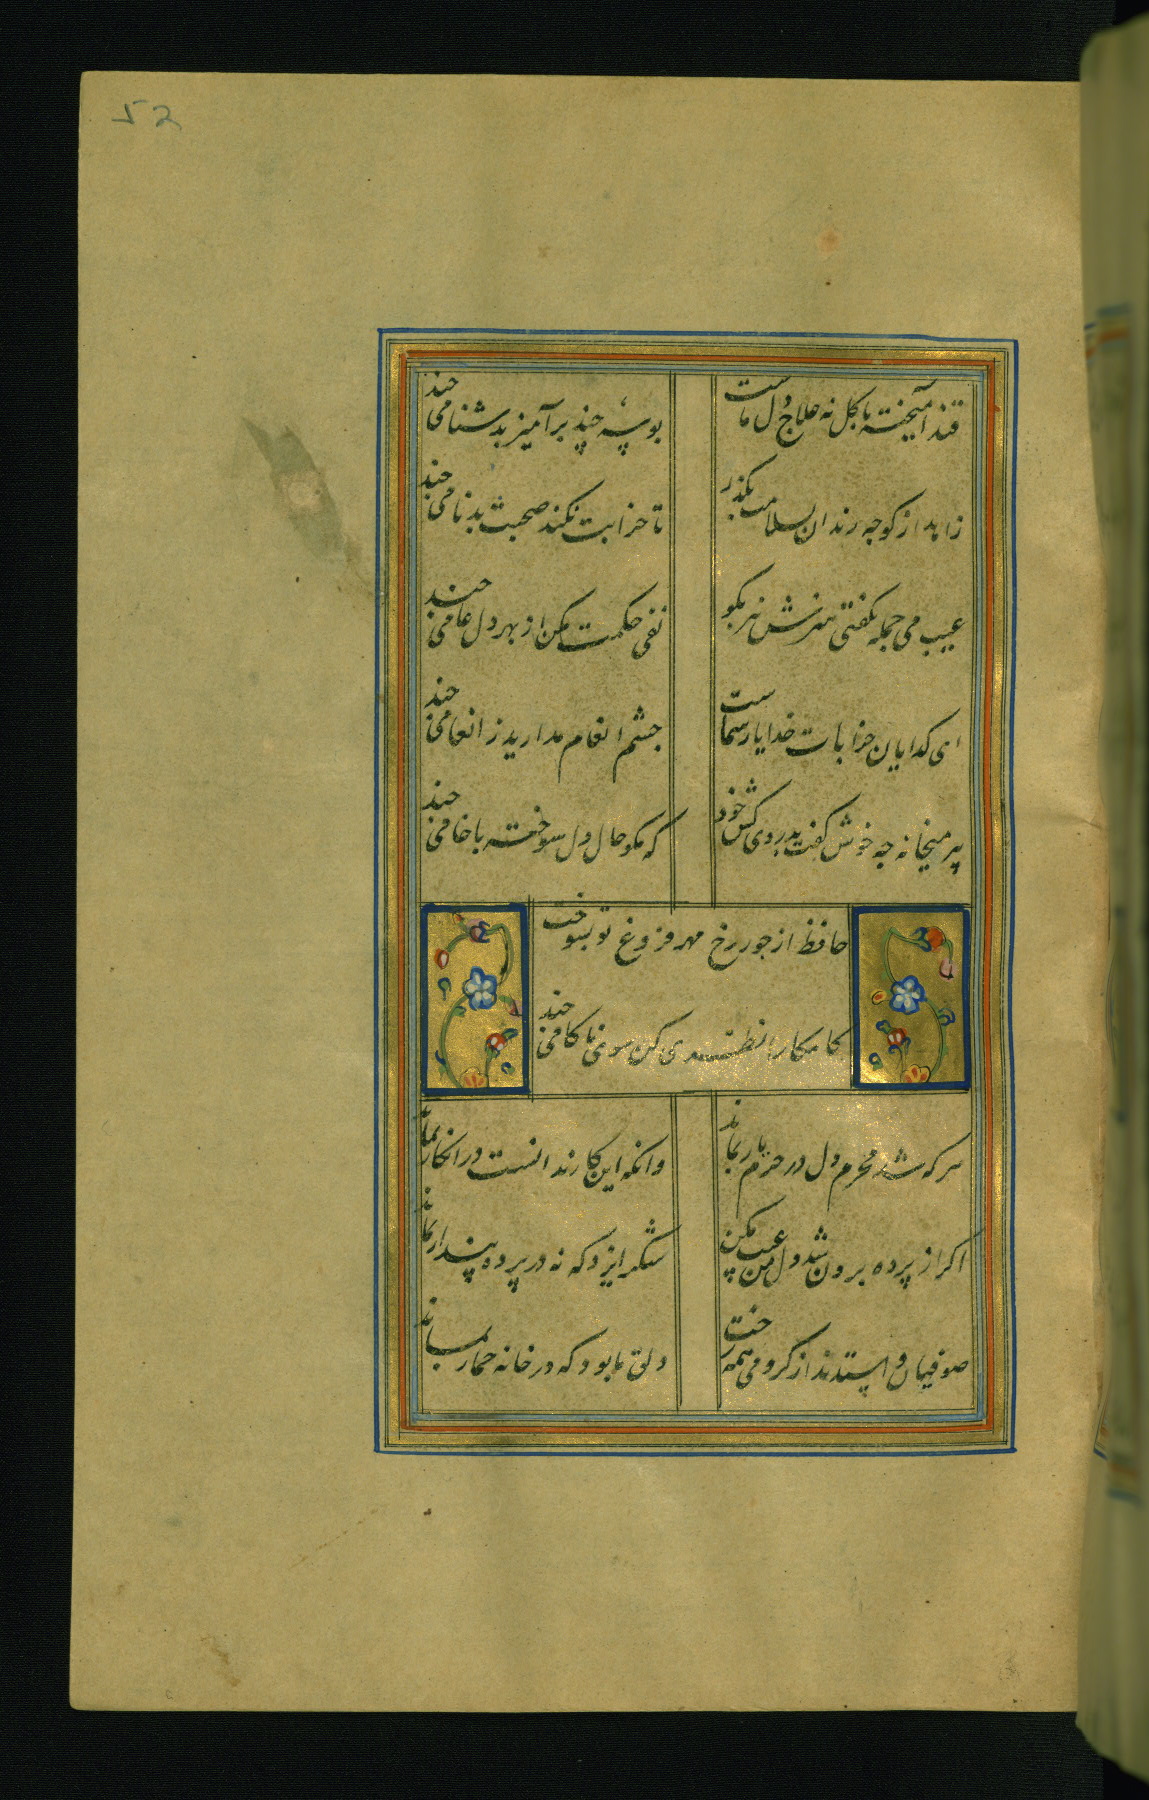 52
قند آمیخته با کل نه علاج دل ماست
بوسه چند برآمیز بدشنامی چند
زاهد از کوچه رندان بسلامت بکذر
تا خرابت نکند صحبت بدنامی چند
عیب می جمله بکفتی هنرش نیز بکو
نفی حکمت مکن از بهر دل عامی چند
ای کدایان خرابات خدا یار شماست
چشم انعام مدارید ز انعامی چند
پیر میخانه چه خوش کفت بدردی کش خود
که مکو حال دل سوخته با خامی چند
حافظ از جور رخ مهر فروغ تو بسوخت
کامکارا نظری کن سوی ناکامی چند
هر که شد محرم دل در حرم یار بماند
وانکه این کار ندانست در انکار بماند
اکر از پرده برون شد دل من عیب مکن
شکر ایزد که نه در پرده پندار بماند
صوفیان واستدند از کرو می همه رخت
دلق ما بود که در خانه خمار بماند